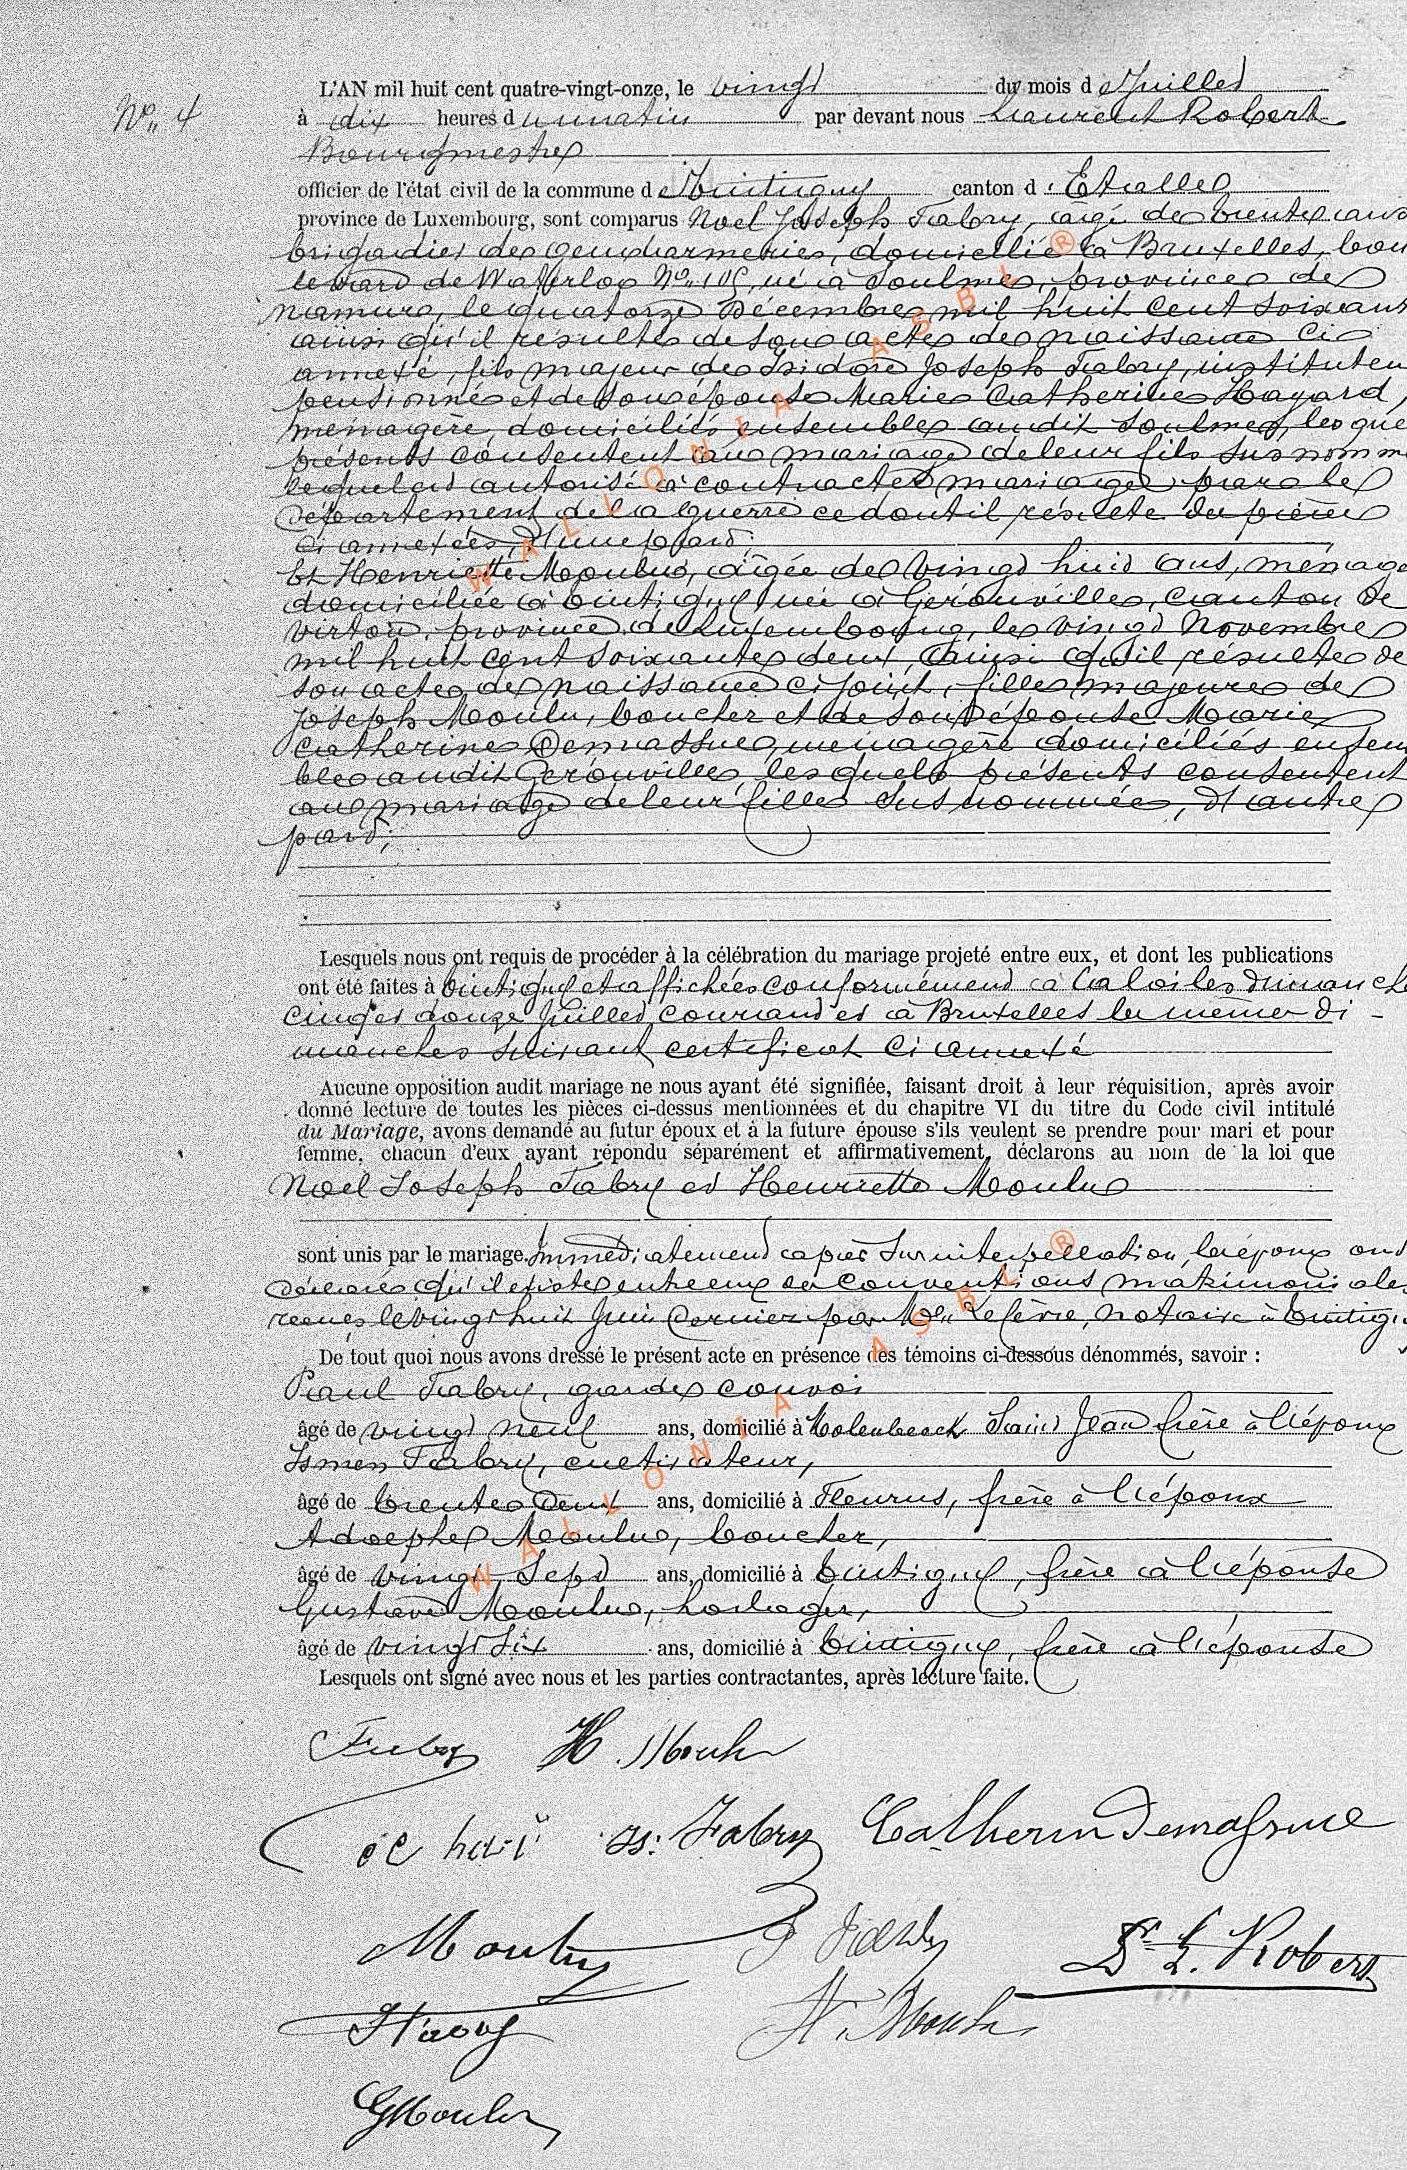 N° 4
L'AN mil huit cent quatre-vingt-onze, le vingt du mois de Juillet
à dix heures du matin par devant nous Laurent Robert
Bourgmestre
officier de l'état civil de la commune de Tintigny canton d'Etalle
province de Luxembourg, sont comparus Noel Joseph Fabry, âgé de trente ans
brigadier de gendarmerie, domicilié à Bruxelles, bou
levard de Waterloo N° 105, né à Soulme, province de
namur, le quatorze Décembre mil huit cent soixante
ainsi qu'il résulte de son acte de naissance ci
annexé, fils majeur de Isidore Joseph Fabry, instituteur
pensionné et de son épouse Marie Catherine Hayard,
ménagère, domiciliés ensemble audit Soulme, lesquels
présents consentent au mariage de leur fils susnommé
lequel est autorisé à contracter mariage par le
Département de la guerre ce dont il résulte des pièces
ci annexées, D'une part;
Et Henriette Moulu, âgée de vingt huit ans, ménagère
domiciliée à Tintigny née à Gérouville, canton de
virton, province de Luxembourg, le vingt Novembre
mil huit cent soixante deux, ainsi qu'il résulte de
son acte de naissance ci joint, fille majeure de
Joseph Moulu, boucher et de son épouse Marie
Catherine Demassue, ménagère domiciliés ensem
ble audit Gérouville, lesquels présents consentent
au mariage de leur fille susnommée, d'autre
part;
Lesquels nous ont requis de procéder à la célébration du mariage projeté entre eux, et dont les publications
ont été faites à Tintigny et affichées conformément à la loi les dimanches
cinq et douze Juillet courant et à Bruxelles les mêmes di-
manches suivant certificat ci annexé
Aucune opposition audit mariage ne nous ayant été signifiée, faisant droit à leur réquisition, après avoir
donné lecture de toutes les pièces ci-dessus mentionnées et du chapitre VI du titre du Code civil intitulé
du Mariage, avons demandé au futur époux et à la future épouse s'ils veulent se prendre pour mari et pour
femme, chacun d'eux ayant répondu séparément et affirmativement, déclarons au nom de la loi que
Noël Joseph Fabry et Henriette Moulu
sont unis par le mariage. Immédiatement après sur interpellation, les époux ont
déclaré qu'il existe entre eux des conventions matrimoniales
reçues le vingt huit Juin dernier par Me Lefèvre, notaire à Tintigny
De tout quoi nous avons dressé le présent acte en présence des témoins ci-dessous dénommés, savoir :
Paul Fabry, garde convoi
âgé de vingt neuf ans, domicilié à Molenbeeck Saint Jean frère à l'époux
Ismen Fabry, cultivateur,
âgé de trente deux ans, domicilié à Fleurus, frère à l'époux
Adolphe Moulu, boucher,
âgé de vingt sept ans, domicilié à Tintigny, frère à l'épouse
Gustave Moulu, horloger,
âgé de vingt six ans, domicilié à Tintigny, frère à l'épouse
Lesquels ont signé avec nous et les parties contractantes, après lecture faite.
Fabry H. Moulu
Is: Fabry Catherin Demassue
Moulu Dr L. Robert
Moulu
GMoulu
WALLONIA ASBL ®
WALLONIA ASBL ®